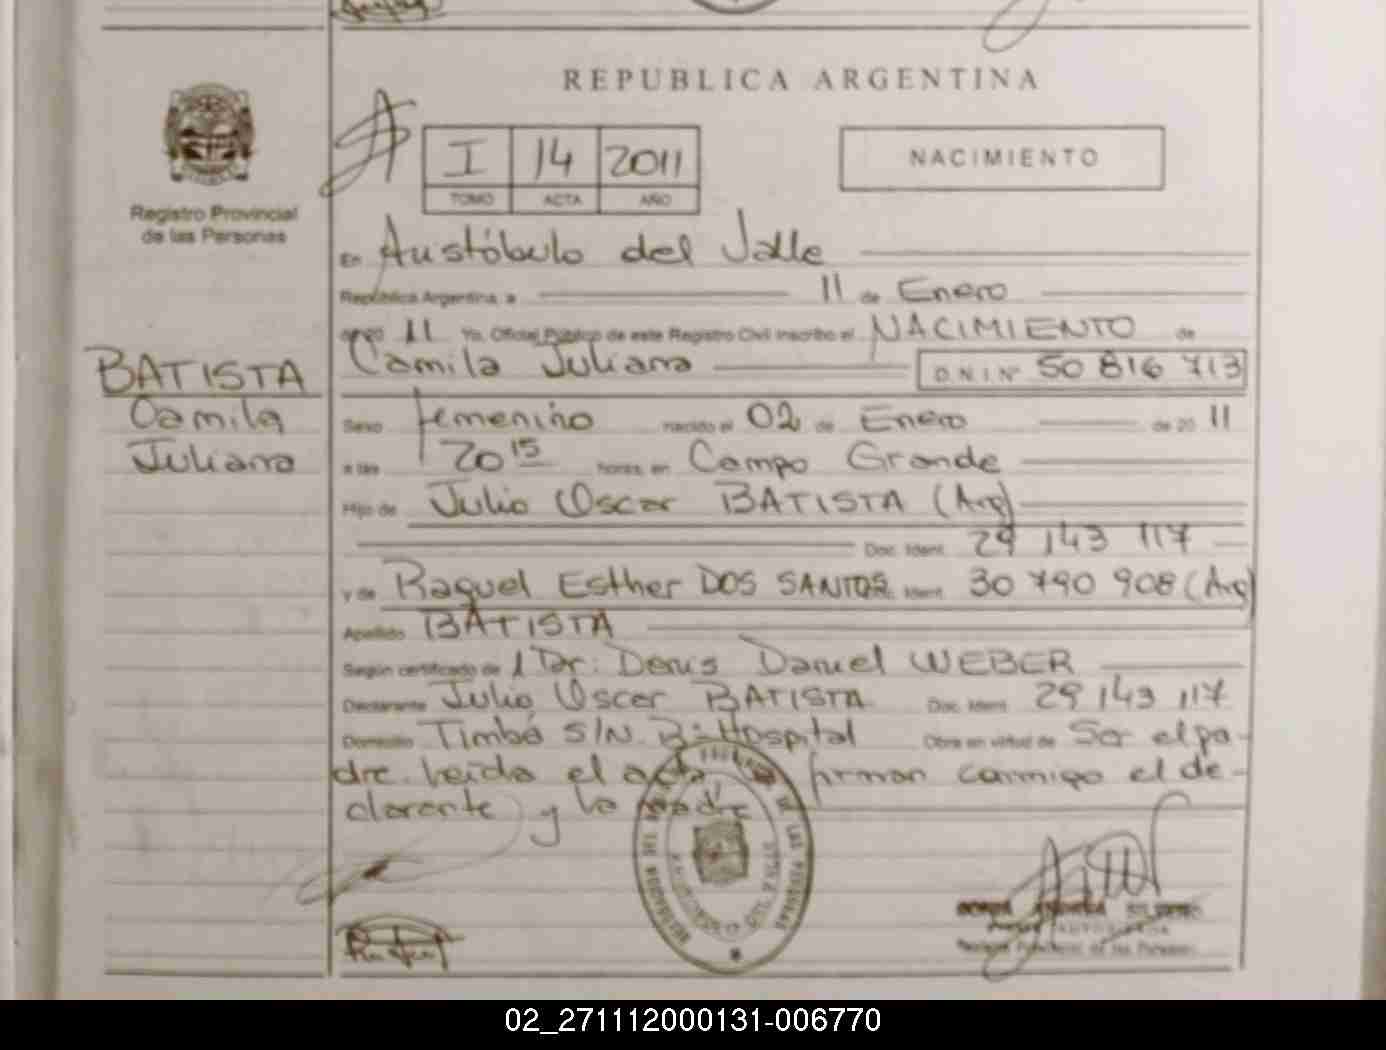 REPUBLICA ARGENTINA
I 14 2011
TOMO ACTA AÑO
NACIMIENTO
Registro Provincial
de las Personas
En Aristóbulo del Valle
República Argentina, a 11 de Enero
11 Yo, Oficial Público de este Registro Civil inscribo el NACIMIENTO de
Camila Juliana D.N.I Nº 50 816 713
BATISTA
Camila
Juliana
Sexo femenino nacido el 02 de Enero de 20 11
a las 20 15 horas en Campo Grande
Hijo de Julio Oscar BATISTA (Arg)
Doc. Ident. 29 143 117
y de Raquel Esther DOS SANTOS Ident. 30 790 908 (Arg)
Apellido BATISTA
Según certificado de Dr: Denis Daniel WEBER
Declarante Julio Oscar BATISTA Doc. Ident. 29 143 117
Domicilio Timbó S/N Bº Hospital Obra en virtud de Ser el pa-
dre. Leida el acta la firman conmigo el de-
clarante y la madre
DE LAS PERSONAS
Registro Provincial de las Personas
02_271112000131-006770